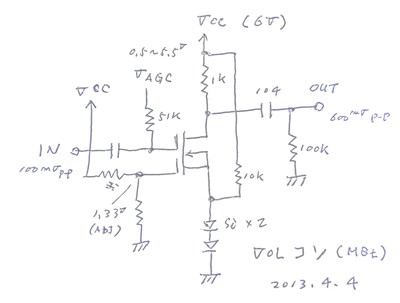 VCC (6V)
0.5~5.5V
VAGC
VCC
51K
1K
104
OUT
600mVp-p
IN
100mVp-p
100K
10K
1.33V
(ADJ)
Si × 2
VOL コン (MOSt)
2013.4.4